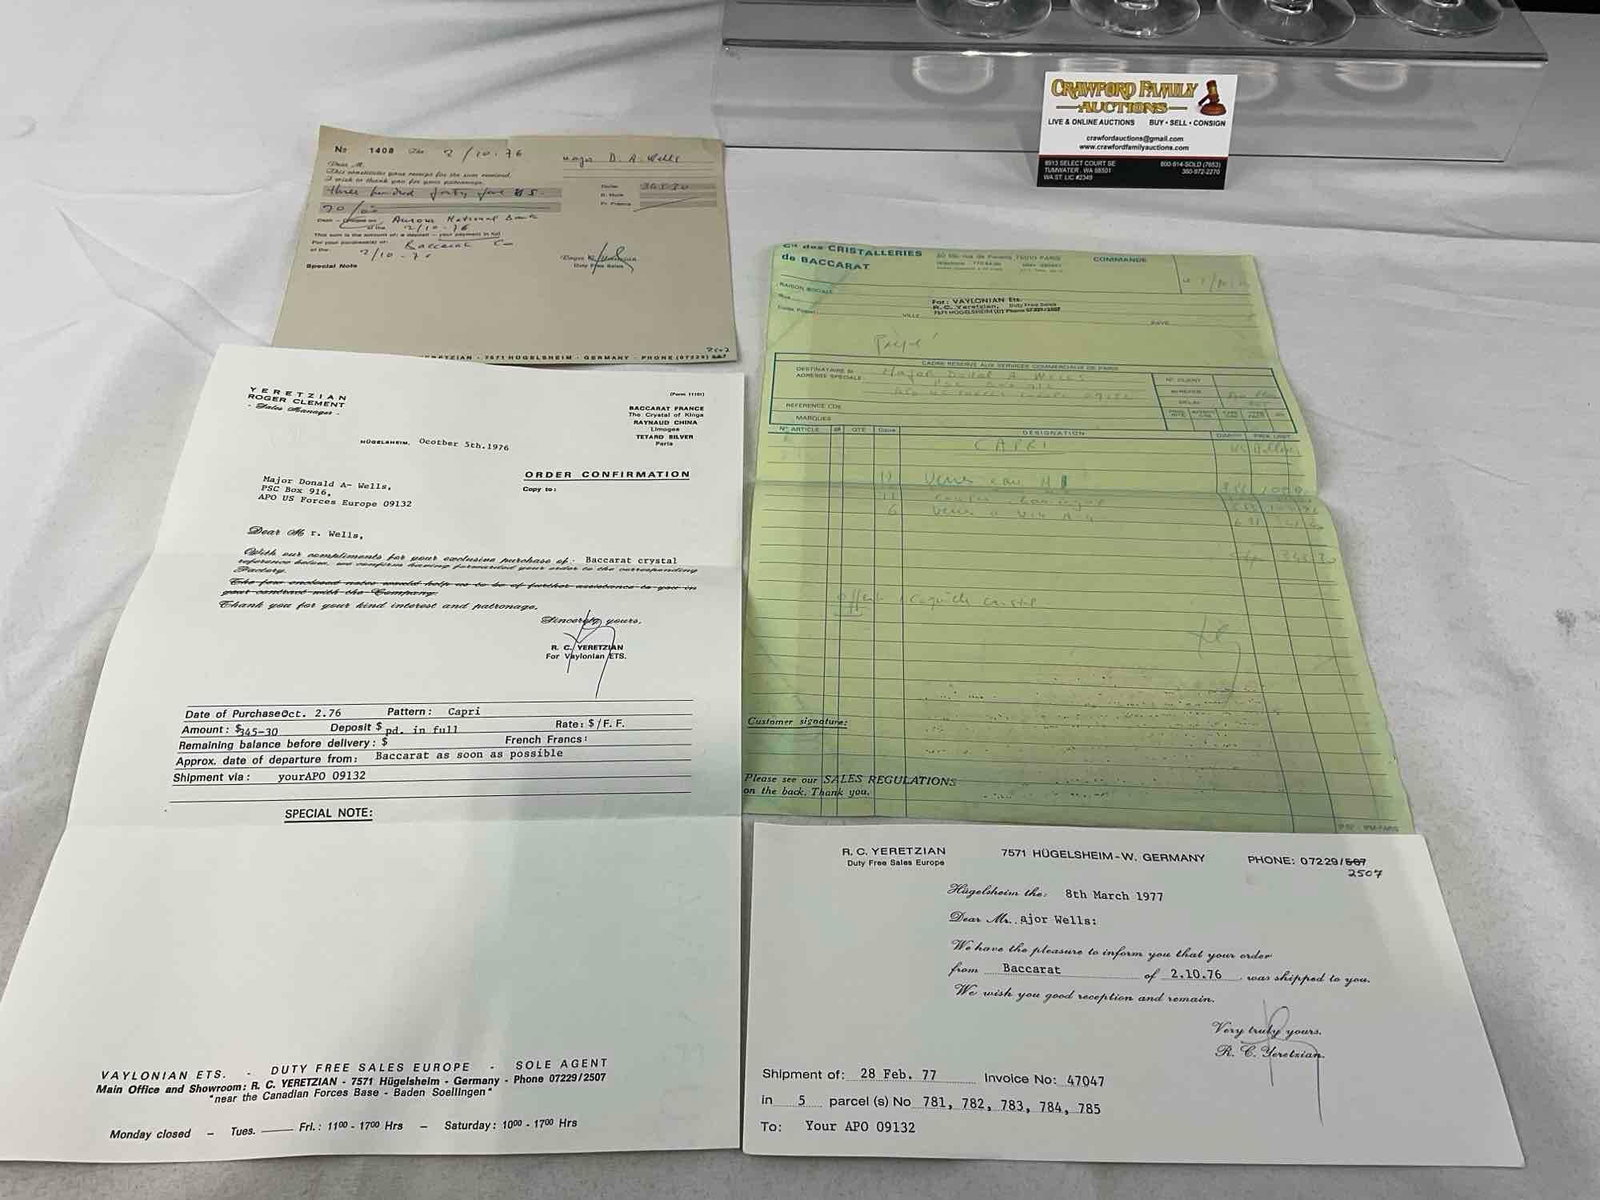 CRAWFORD FAMILY
AUCTIONS
LIVE & ONLINE AUCTIONS BUY • SELL • CONSIGN
crawfordauctions@gmail.com
www.crawfordfamilyauctions.com
8913 SELECT COURT SE
TUMWATER, WA 98501
WA ST. LIC #2349
800-914-SOLD (7653)
360-972-2270
No 1408 the 2/10.76 Major D. A. Wells
Dear M.
This constitutes your receipt for the sum received.
I wish to thank you for your patronage.
three hundred forty five $ US.
30/00
Aurora National Bank
2/10-76
This sum is the amount of: a deposit - your payment in full
For your purchase(s) of: Baccarat
of the: 2/10-76
Special Note
Dollar 345.30
Duty Free Sales
YERETZIAN - 7571 HÜGELSHEIM - GERMANY - PHONE (07229) 507
2507
Cie des CRISTALLERIES
de BACCARAT
75010 PARIS
COMMANDE
RAISON SOCIALE
Rue
Code Postal
VILLE
PAYS
For: VAYLONIAN Ets.
R. C. Yeretzian, Duty Free Sales
7571 HÜGELSHEIM (D) Phone 07229/2507
CADRE RESERVE AUX SERVICES COMMERCIAUX DE PARIS
DESTINATAIRE SI
ADRESSE SPECIALE:
Major Donald A Wells
N° CLIENT
REFERENCE CDE
MARQUES
DELAI
N° ARTICLE QTE DESIGNATION PRIX UNIT
CAPRI
Verres eau
6 Verres a Vin
345.30
Customer signature:
Please see our SALES REGULATIONS
on the back. Thank you.
YERETZIAN
ROGER CLEMENT
- Sales Manager -
(Form 11101)
BACCARAT FRANCE
The Crystal of Kings
RAYNAUD CHINA
Limoges
TETARD SILVER
Paris
HÜGELSHEIM, Ocotber 5th.1976
ORDER CONFIRMATION
Copy to:
Major Donald A- Wells,
PSC Box 916,
APO US Forces Europe 09132
Dear M r. Wells,
With our compliments for your exclusive purchase of: Baccarat crystal
reference below, we confirm having forwarded your order to the corresponding
Factory.
The few enclosed notes would help us to be of further assistance to you in
your contract with the Company.
Thank you for your kind interest and patronage.
Sincerely yours,
R. C. YERETZIAN
For Vaylonian ETS.
Date of Purchase Oct. 2.76 Pattern: Capri
Amount: $345-30 Deposit $ pd. in full Rate: $/F. F.
Remaining balance before delivery: $ French Francs:
Approx. date of departure from: Baccarat as soon as possible
Shipment via: yourAPO 09132
SPECIAL NOTE:
VAYLONIAN ETS. - DUTY FREE SALES EUROPE - SOLE AGENT
Main Office and Showroom: R. C. YERETZIAN - 7571 Hügelsheim - Germany - Phone 07229/2507
"near the Canadian Forces Base - Baden Soellingen"
Monday closed - Tues. — Fri.: 11 00 - 17 00 Hrs - Saturday: 10 00 - 17 00 Hrs
R. C. YERETZIAN
Duty Free Sales Europe
7571 HÜGELSHEIM-W. GERMANY PHONE: 07229/507
2507
Hügelsheim the: 8th March 1977
Dear Mr. ajor Wells:
We have the pleasure to inform you that your order
from Baccarat of 2.10.76 was shipped to you.
We wish you good reception and remain.
Very truly yours,
R. C. Yeretzian.
Shipment of: 28 Feb. 77 Invoice No: 47047
in 5 parcel (s) No 781, 782, 783, 784, 785
To: Your APO 09132